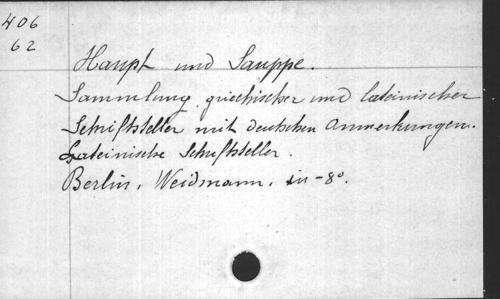 406
62
Haupt und Sauppe.
Sammlung griechischer und lateinischer
Schriftsteller mit deutschen Anmerkungen.
Lateinische Schriftsteller.
Berlin, Weidmann, in-8°.